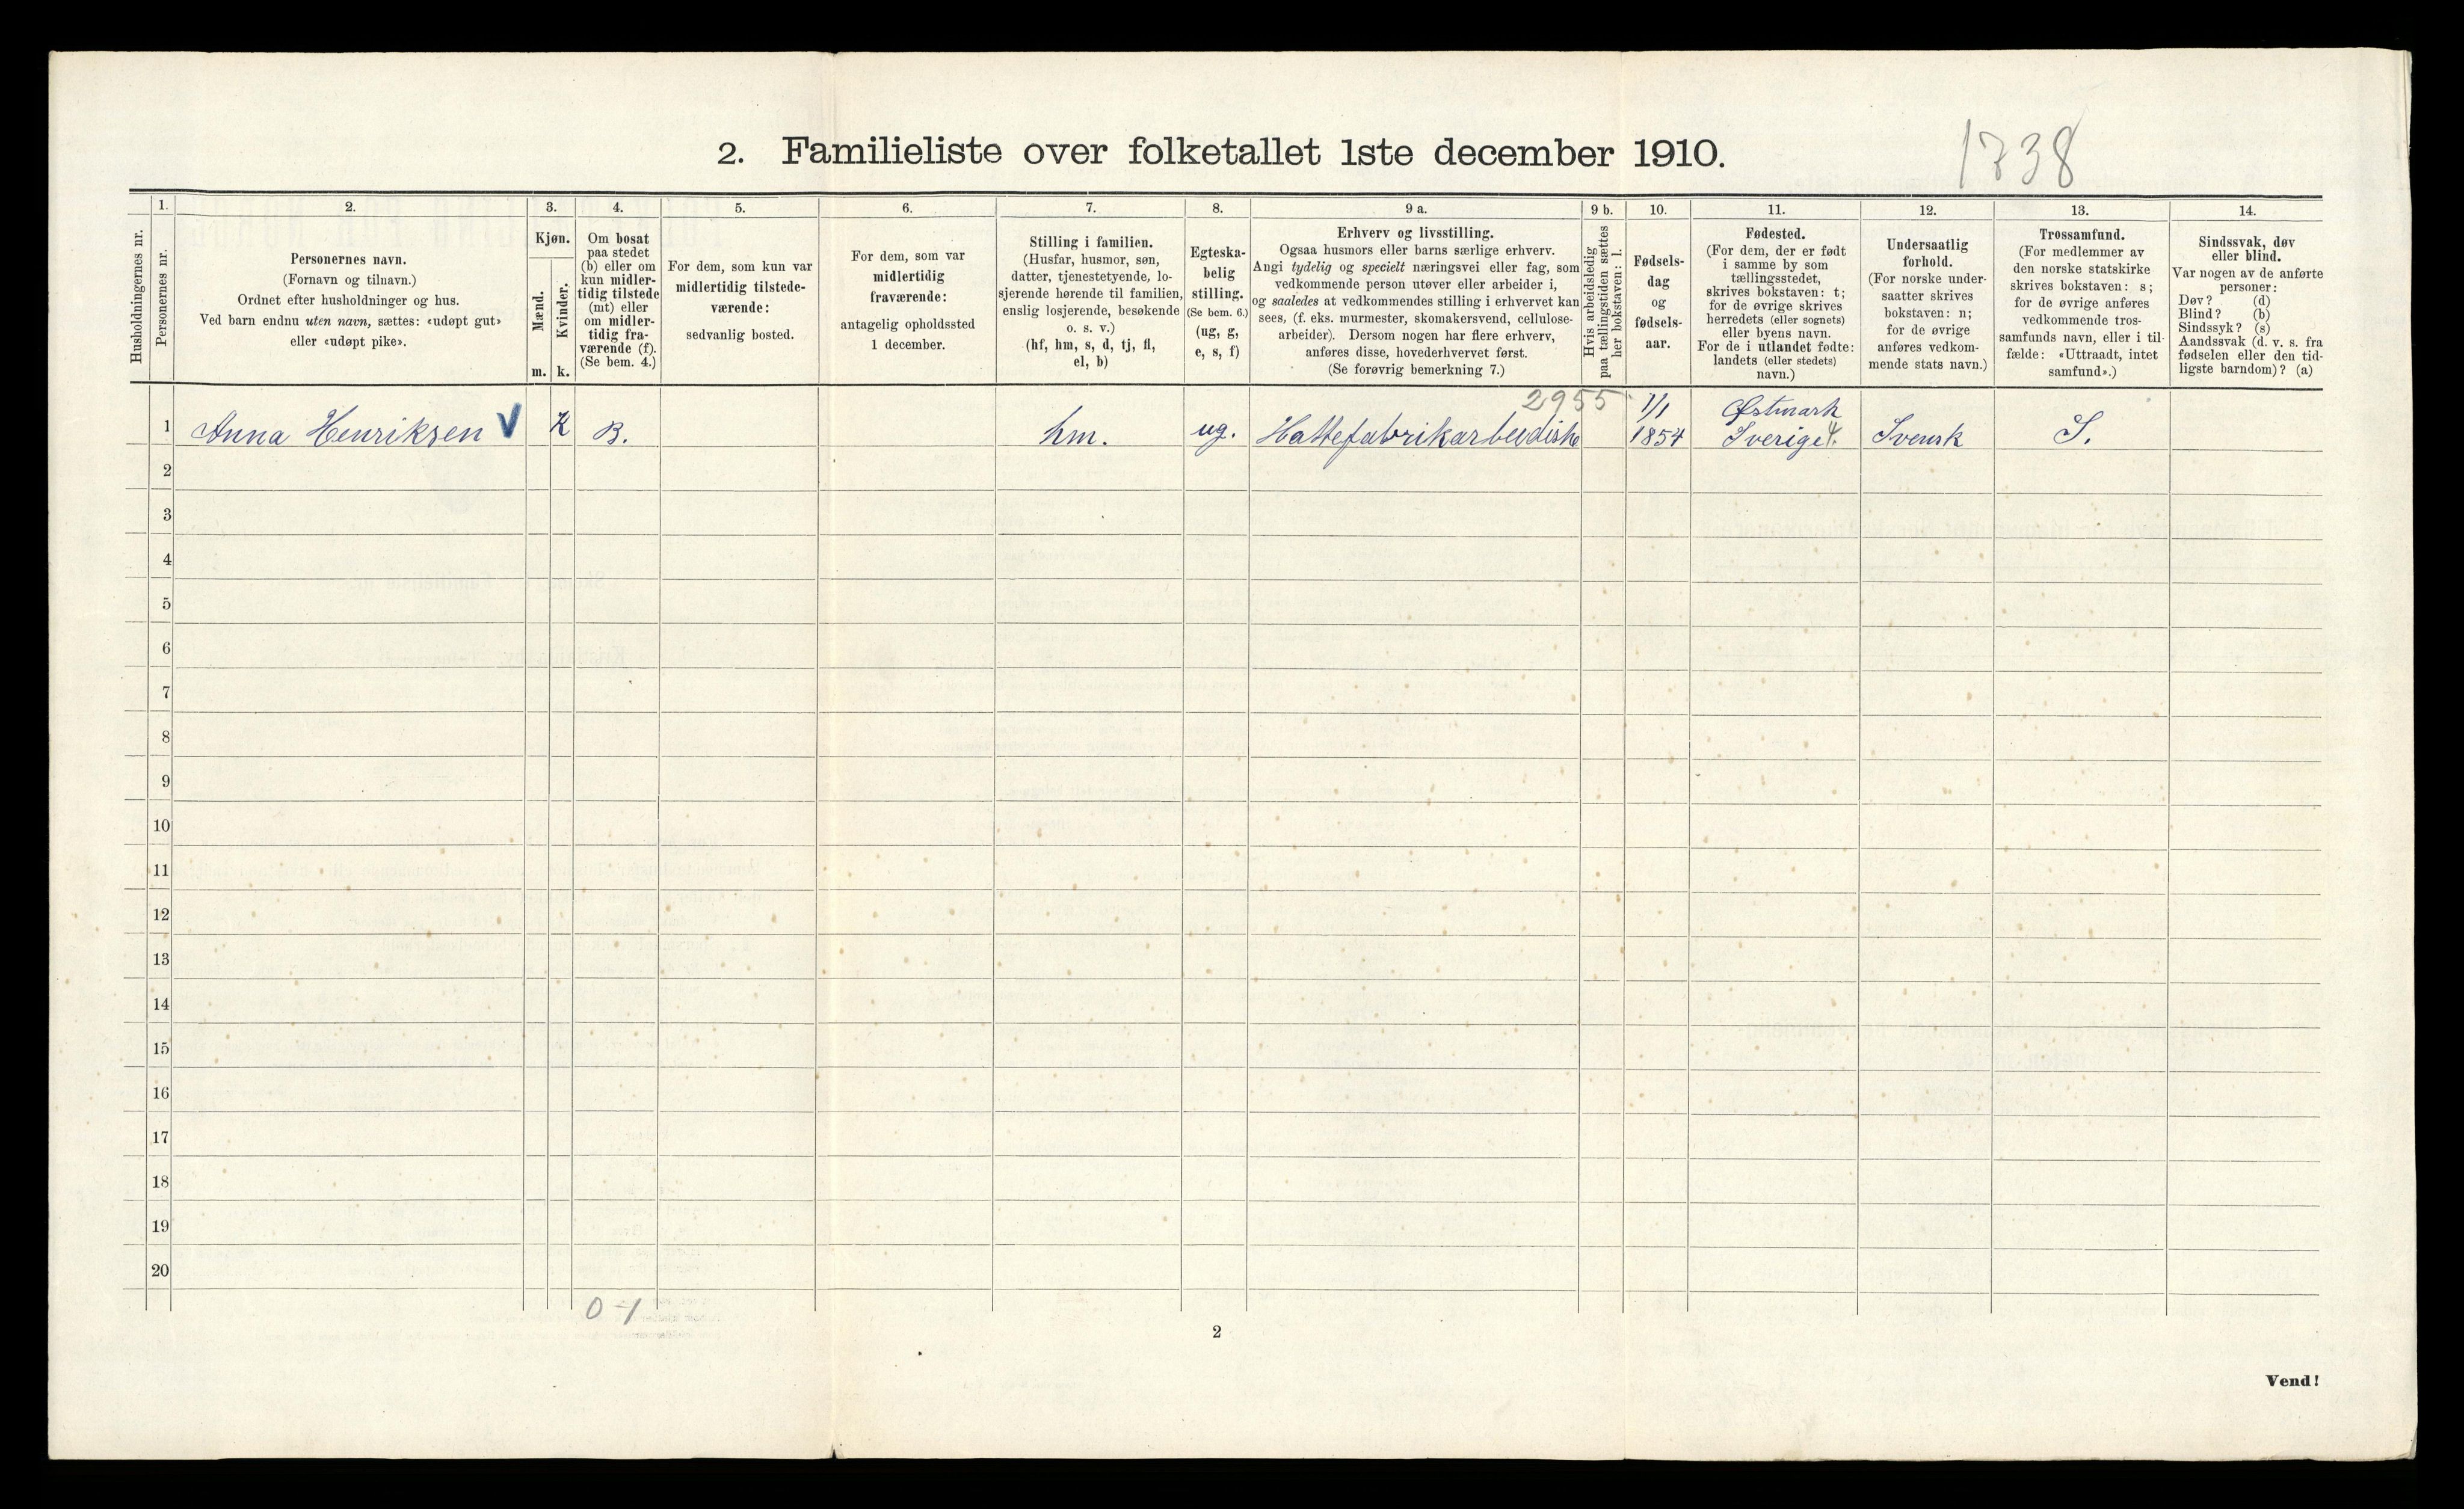 2. Familieliste over folketallet 1ste december 1910.
1738
Husholdningernes nr.
1.
Personernes nr.
2.
Personernes navn.
(Fornavn og tilnavn.)
Ordnet efter husholdninger og hus.
Ved barn endnu uten navn, sættes: «udøpt gut»
eller «udøpt pike».
3.
Kjøn.
Mænd.
Kvinder.
m. k.
4.
Om bosat
paa stedet
(b) eller om
kun midler-
tidig tilstede
(mt) eller
om midler-
tidig fra-
værende (f).
(Se bem. 4.)
5.
For dem, som kun var
midlertidig tilstede-
værende:
sedvanlig bosted.
6.
For dem, som var
midlertidig
fraværende:
antagelig opholdssted
1 december.
7.
Stilling i familien.
(Husfar, husmor, søn,
datter, tjenestetyende, lo-
sjerende hørende til familien,
enslig losjerende, besøkende
o. s. v.)
(hf, hm, s, d, tj, fl,
el, b)
8.
Egteska-
belig
stilling.
(Se bem. 6.)
(ug, g,
e, s, f)
9 a.
Erhverv og livsstilling.
Ogsaa husmors eller barns særlige erhverv.
Angi tydelig og specielt næringsvei eller fag, som
vedkommende person utøver eller arbeider i,
og saaledes at vedkommendes stilling i erhvervet kan
sees, (f. eks. murmester, skomakersvend, cellulose-
arbeider). Dersom nogen har flere erhverv,
anføres disse, hovederhvervet først.
(Se forøvrig bemerkning 7.)
9 b.
Hvis arbeidsledig
paa tællingstiden sættes
her bokstaven: l.
10.
Fødsels-
dag
og
fødsels-
aar.
11.
Fødested.
(For dem, der er født
i samme by som
tællingsstedet,
skrives bokstaven: t;
for de øvrige skrives
herredets (eller sognets)
eller byens navn.
For de i utlandet fødte:
landets (eller stedets)
navn.)
12.
Undersaatlig
forhold.
(For norske under-
saatter skrives
bokstaven: n;
for de øvrige
anføres vedkom-
mende stats navn.)
13.
Trossamfund.
(For medlemmer av
den norske statskirke
skrives bokstaven: s;
for de øvrige anføres
vedkommende tros-
samfunds navn, eller i til-
fælde: «Uttraadt, intet
samfund».)
14.
Sindssvak, døv
eller blind.
Var nogen av de anførte
personer:
Døv? (d)
Blind? (b)
Sindssyk? (s)
Aandssvak (d. v. s. fra
fødselen eller den tid-
ligste barndom)? (a)
2955 1/1 Østmark
1 Anna Henriksen V K B. hm. ug. Hattefabrikarbeidiske 1854 Sverige. Svensk S.
2
3
4
5
6
7
8
9
10
11
12
13
14
15
16
17
18
19
20
0-1
2
Vend!